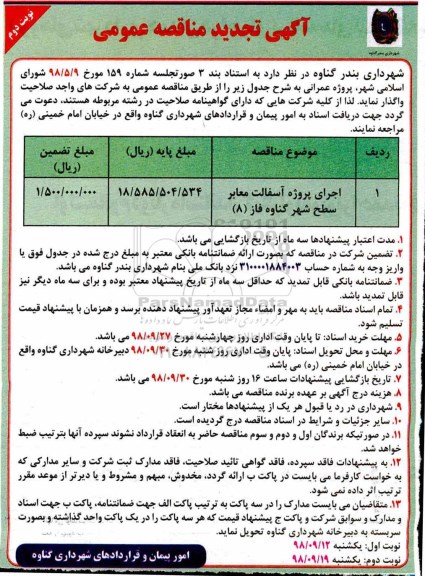 نوبت دوم
آگهی تجدید مناقصه عمومی
شهرداری بندر گناوه
شهرداری بندر گناوه در نظر دارد به استناد بند ۳ صورتجلسه شماره ۱۵۹ مورخ ۹۸/۵/۹ شورای
اسلامی شهر، پروژه عمرانی به شرح جدول زیر را از طریق مناقصه عمومی به شرکت های واجد صلاحیت
واگذار نماید. لذا از کلیه شرکت هایی که دارای گواهینامه صلاحیت در رشته مربوطه هستند، دعوت می
گردد جهت دریافت اسناد به امور پیمان و قراردادهای شهرداری گناوه واقع در خیابان امام خمینی (ره)
مراجعه نمایند.
ردیف موضوع مناقصه مبلغ پایه (ریال) مبلغ تضمین (ریال)
۱ اجرای پروژه آسفالت معابر سطح شهر گناوه فاز (۸) ۱۸/۵۸۵/۵۰۴/۵۳۴ ۱/۵۰۰/۰۰۰/۰۰۰
۱. مدت اعتبار پیشنهادها سه ماه از تاریخ بازگشایی می باشد.
۲. تضمین شرکت در مناقصه که بصورت ارائه ضمانتنامه بانکی معتبر به مبلغ درج شده در جدول فوق یا
واریز وجه به شماره حساب ۳۱۰۰۰۰۱۸۸۴۰۰۳ نزد بانک ملی بنام شهرداری بندر گناوه می باشد.
۳. ضمانتنامه بانکی قابل تمدید که حداقل سه ماه از تاریخ پیشنهاد معتبر بوده و برای سه ماه دیگر نیز
قابل تمدید باشد.
۴. تمام اسناد مناقصه باید به مهر و امضاء مجاز تعهدآور پیشنهاد دهنده برسد و همزمان با پیشنهاد قیمت
تسلیم شود.
۵. مهلت خرید اسناد: تا پایان وقت اداری روز چهارشنبه مورخ ۹۸/۰۹/۲۷ می باشد.
۶. مهلت و محل تحویل اسناد: پایان وقت اداری روز شنبه مورخ ۹۸/۰۹/۳۰ دبیرخانه شهرداری گناوه واقع
در خیابان امام خمینی (ره) می باشد.
۷. تاریخ بازگشایی پیشنهادات ساعت ۱۶ روز شنبه مورخ ۹۸/۰۹/۳۰ می باشد.
۸. هزینه درج آگهی بر عهده برنده مناقصه می باشد.
۹. شهرداری در رد یا قبول هر یک از پیشنهادها مختار است.
۱۰. سایر جزئیات و شرایط در اسناد مناقصه درج گردیده است.
۱۱. در صورتیکه برندگان اول و دوم و سوم مناقصه حاضر به انعقاد قرارداد نشوند سپرده آنها بترتیب ضبط
خواهد شد.
۱۲. به پیشنهادات فاقد سپرده، فاقد گواهی تائید صلاحیت، فاقد مدارک ثبت شرکت و سایر مدارکی که
به خواست کارفرما می بایست در پاکت ب ارائه گردد، مخدوش، مبهم و مشروط و یا دیرتر از موعد مقرر
ترتیب اثر داده نمی شود.
۱۳. متقاضیان می بایست مدارک را در سه پاکت به ترتیب پاکت الف جهت ضمانتنامه، پاکت ب جهت اسناد
و مدارک و سوابق شرکت و پاکت ج پیشنهاد قیمت که هر سه پاکت را در یک پاکت واحد گذاشته و بصورت
سربسته به دبیرخانه شهرداری گناوه تحویل نماید.
نوبت اول: یکشنبه ۹۸/۰۹/۱۲
نوبت دوم: یکشنبه ۹۸/۰۹/۱۹
امور پیمان و قراردادهای شهرداری گناوه
ParsNamadData